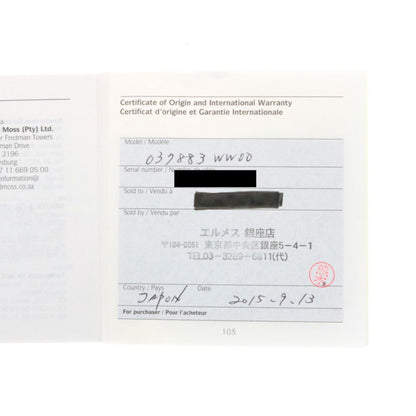 Moss (Pty) Ltd.
Fredman Towers
Drive
2196
11 669 05 00
Certificate of Origin and International Warranty
Certificat d'origine et Garantie Internationale
Model / Modèle
037883 WW00
Serial number /
Sold to / Vendu à
Sold by / Vendu par
エルメス 銀座店
〒104-0061 東京都中央区銀座5-4-1
TEL.03-3289-6811(代)
Country / Pays Date
JAPON 2015-9-13
For purchaser / Pour l'acheteur
103